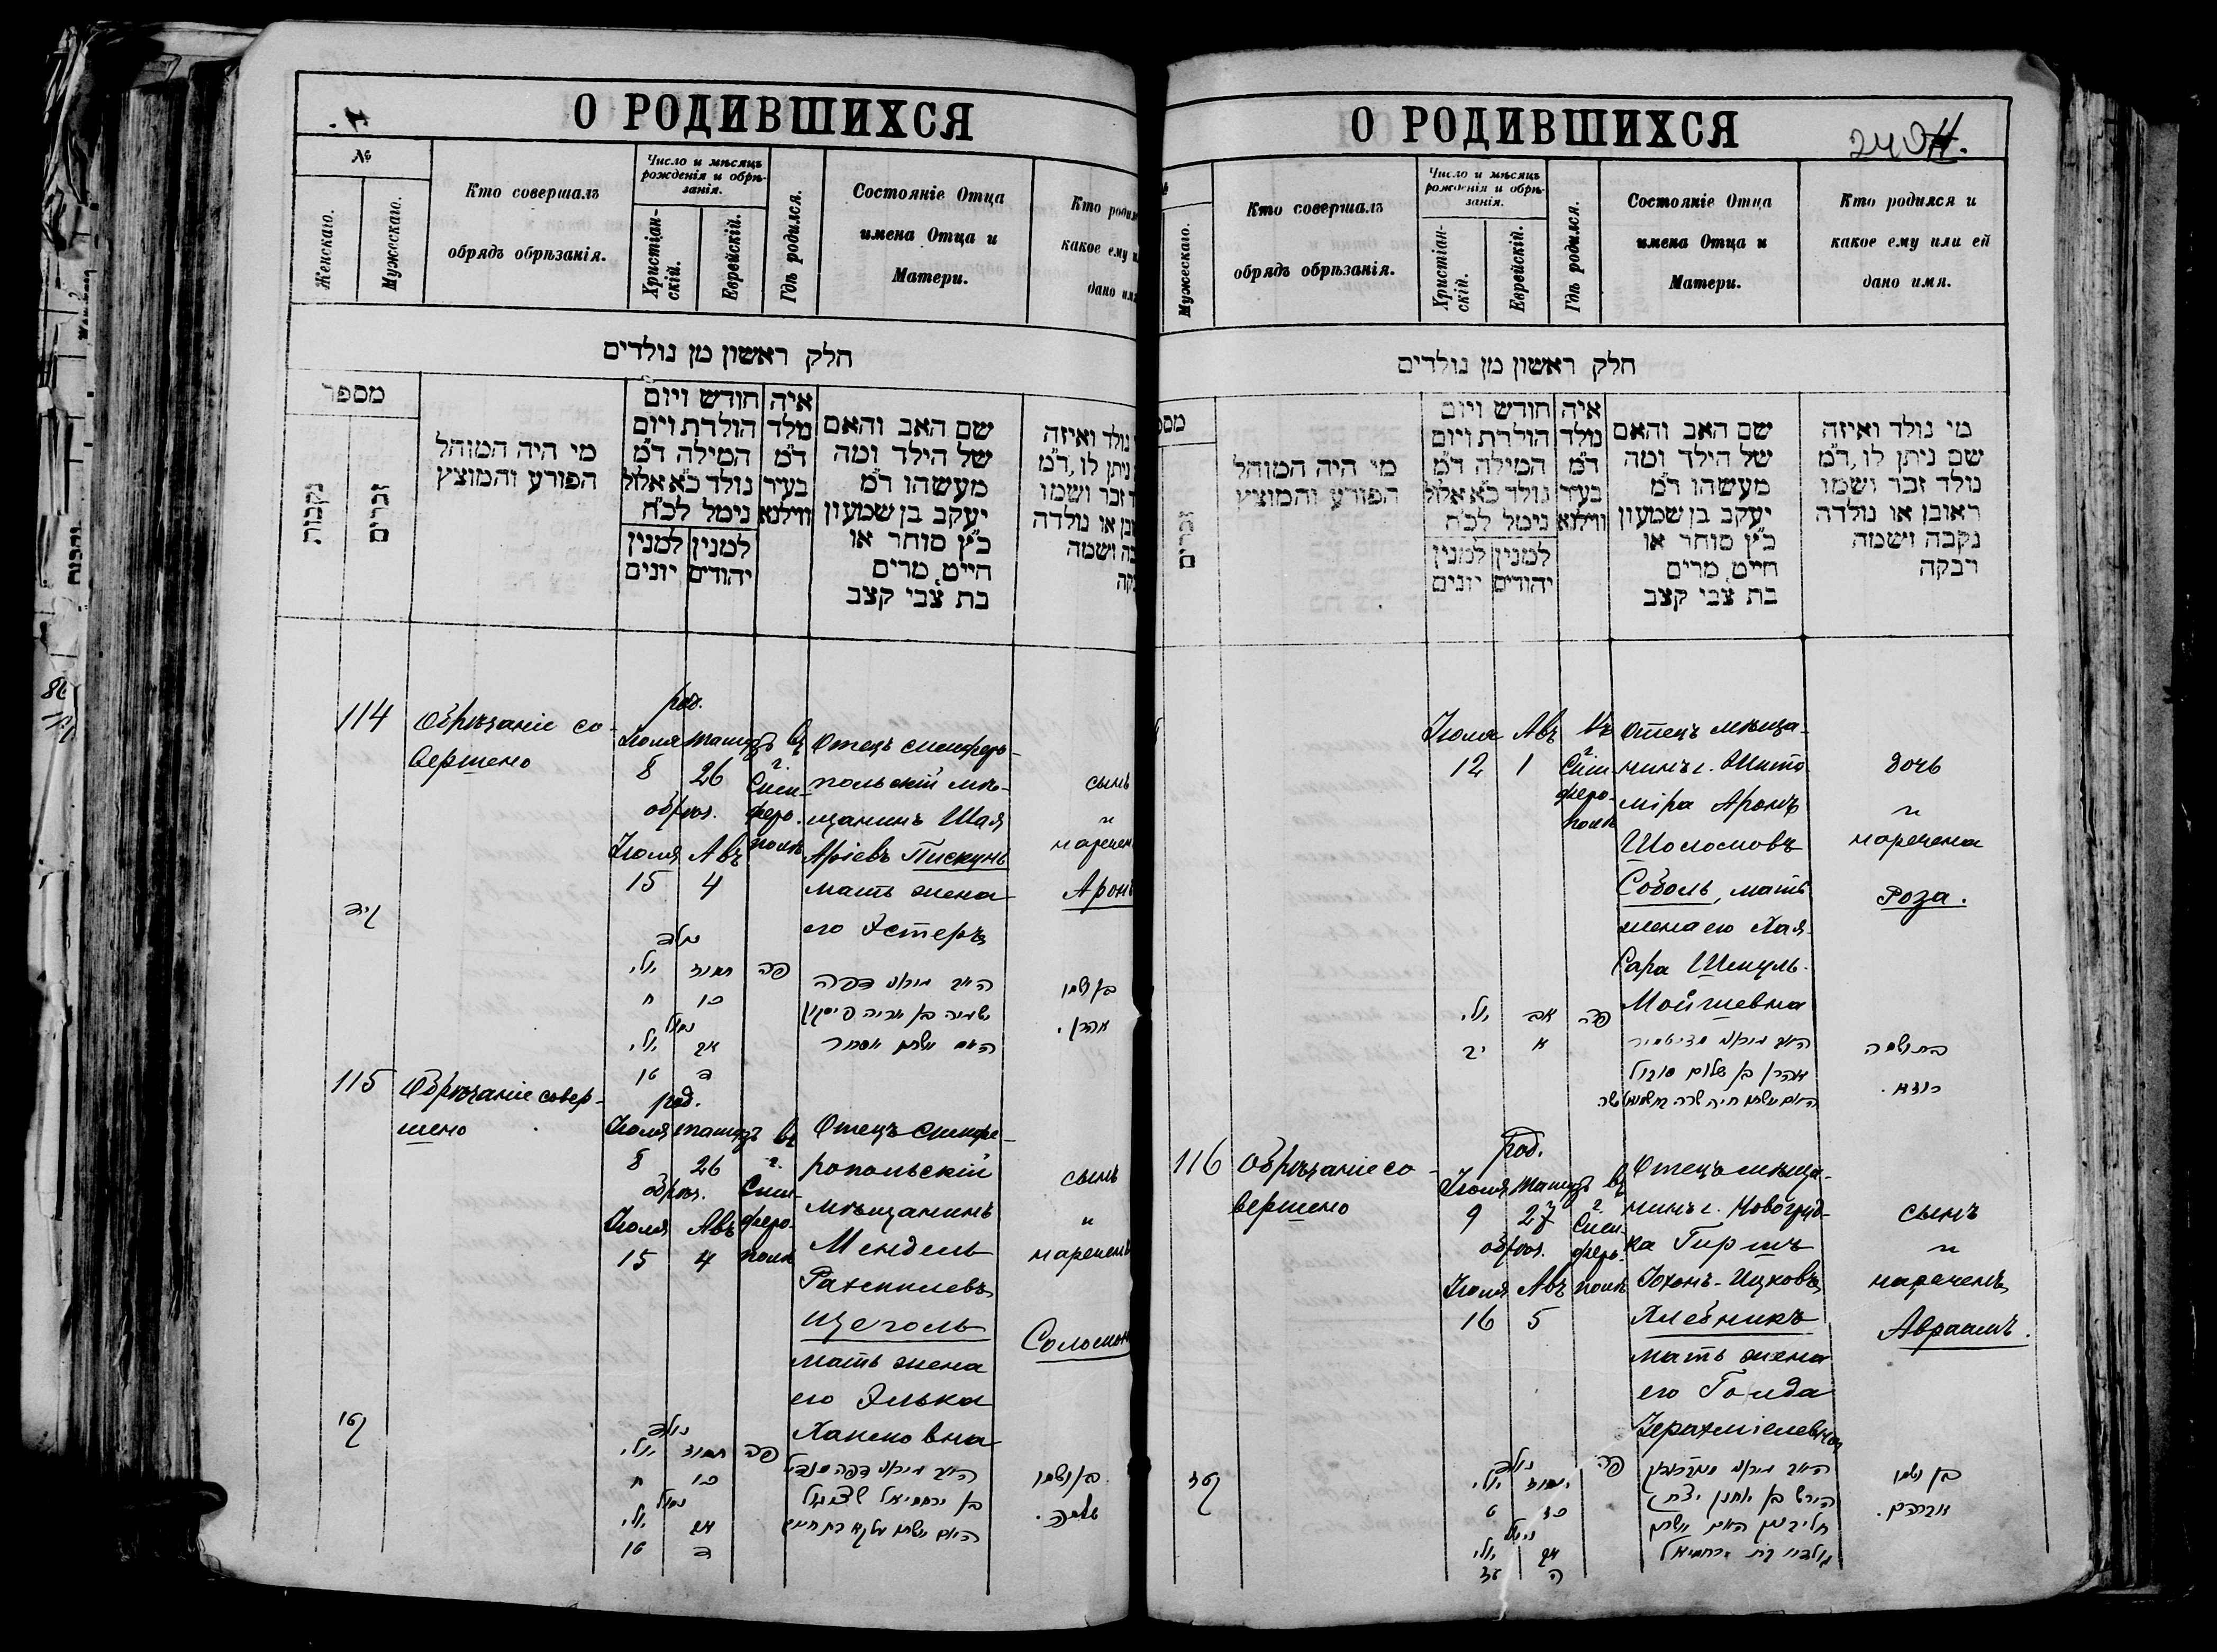 О РОДИВШИХСЯ
№
Женскаго.
Мужескаго.
Кто совершалъ
обрядъ обрѣзанія.
Число и мѣсяцъ
рожденія и обрѣ-
занія.
Христіан-
скій.
Еврейскій.
Гдѣ родился.
Состояніе Отца
имена Отца и
Матери.
Кто родил
какое ему и
дано имя
חלק ראשון מן נולדים
מספר
נקבות
זכרים
מי היה המוהל
הפורע והמוצץ
חודש ויום
הולדת ויום
המילה ד״מ
נולד כ״א אלול
נימל לכ״ח
למנין יונים
למנין יהודים
איה
מלד
ד״מ
בעיר
ווילנא
שם האב והאם
של הילד ומה
מעשהו ד״מ
יעקב בן שמעון
כ״ץ סוחר או
חייט, מרים
בת צבי קצב
נולד ואיזה
ניתן לו, ד״מ
ד זכר ושמו
ובן או נולדה
בה ושמה
בקה
114
Обрѣзаніе со-
вершено
род.
Іюля Тамузъ
8 26
обрѣз.
Іюля Авъ
15 4
въ
г.
Сим-
феро-
полѣ
Отецъ симферо-
польскій мѣ-
щанинъ Шая
Аріевъ Пискунъ
мать жена
его Эстеръ
сынъ
"
наречен
Аронъ
קיד
נולד
יולי תמוז פה
ח כו
נימול
יולי אב
טו ד
בן ושמו
אהרן.
115
Обрѣзаніе совер-
шено
род.
Іюля Тамузъ
8 26
обрѣз.
Іюля Авъ
15 4
въ
г.
Сим-
феро-
полѣ
Отецъ симфе-
ропольскій
мѣщанинъ
Мендель
Рахмилевъ
Щеголь
мать жена
его Элька
Хаимовна
сынъ
"
нареченъ
Соломонъ
קטו
נולד
יולי תמוז פה
ח כו
נימול
יולי אב
טו ד
בן ושמו
שלמה.
О РОДИВШИХСЯ
Мужескаго.
Кто совершалъ
обрядъ обрѣзанія.
Число и мѣсяцъ
рожденія и обрѣ-
занія.
Христіан-
скій.
Еврейскій.
Гдѣ родился.
Состояніе Отца
имена Отца и
Матери.
Кто родился и
какое ему или ей
дано имя.
חלק ראשון מן נולדים
מספ
זכרים
מי היה המוהל
הפורע והמוצץ
חודש ויום
הולדת ויום
המילה ד״מ
נולד כ״א אלול
נימל לכ״ח
למנין יונים
למנין יהודים
איה
מלד
ד״מ
בעיר
ווילנא
שם האב והאם
של הילד ומה
מעשהו ד״מ
יעקב בן שמעון
כ״ץ סוחר או
חייט, מרים
בת צבי קצב
מי נולד ואיזה
שם ניתן לו, ד״מ
נולד זכר ושמו
ראובן או נולדה
נקבה ושמה
רבקה
Іюля Авъ
12 1
Въ
г.
Сим-
феро-
полѣ
Отецъ мѣща-
нинъ г. Жито-
міра Аронъ
Шоломовъ
Соболь, мать
жена его Хая-
Сара Шмуль-
Мойшевна
дочь
"
наречена
Роза.
יולי אב פה
יב א
אהרן בן שלום סובול
בת ושמה
רוזא.
116
Обрѣзаніе со-
вершено
род.
Іюля Тамузъ
9 27
обрѣз.
Іюля Авъ
16 5
въ
г.
Сим-
феро-
полѣ
Отецъ мѣща-
нинъ г. Новогруд-
ка Гиршъ
Іохонъ-Ицковъ
Хлебникъ
мать жена
его Голда
Іерахміелевна
сынъ
"
нареченъ
Авраамъ.
קטז
נולד
יולי תמוז פה
ט כז
נימול
יולי אב
טז ה
בן ושמו
אברהם.